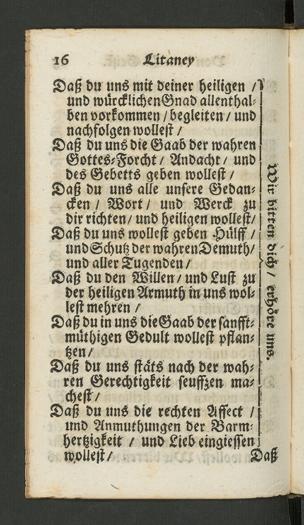 16 Litaney
Daß du uns mit deiner heiligen /
und würcklichen Gnad allenthal-
ben vorkommen / begleiten / und
nachfolgen wollest /
Daß du uns die Gaab der wahren
Gottes-Forcht / Andacht / und
des Gebetts geben wollest /
Daß du uns alle unsere Gedan-
cken / Wort / und Werck zu
dir richten / und heiligen wollest /
Daß du uns wollest geben Hülff /
und Schutz der wahren Demuth /
und aller Tugenden /
Daß du den Willen / und Lust zu
der heiligen Armuth in uns wol-
lest mehren /
Daß du in uns die Gaab der sanfft-
müthigen Gedult wollest pflan-
tzen /
Daß du uns stäts nach der wah-
ren Gerechtigkeit seuffzen ma-
chest /
Daß du uns die rechten Affect /
und Anmuthungen der Barm-
hertzigkeit / und Lieb eingiessen
wollest / Daß
Wir bitten dich / erhöre uns.